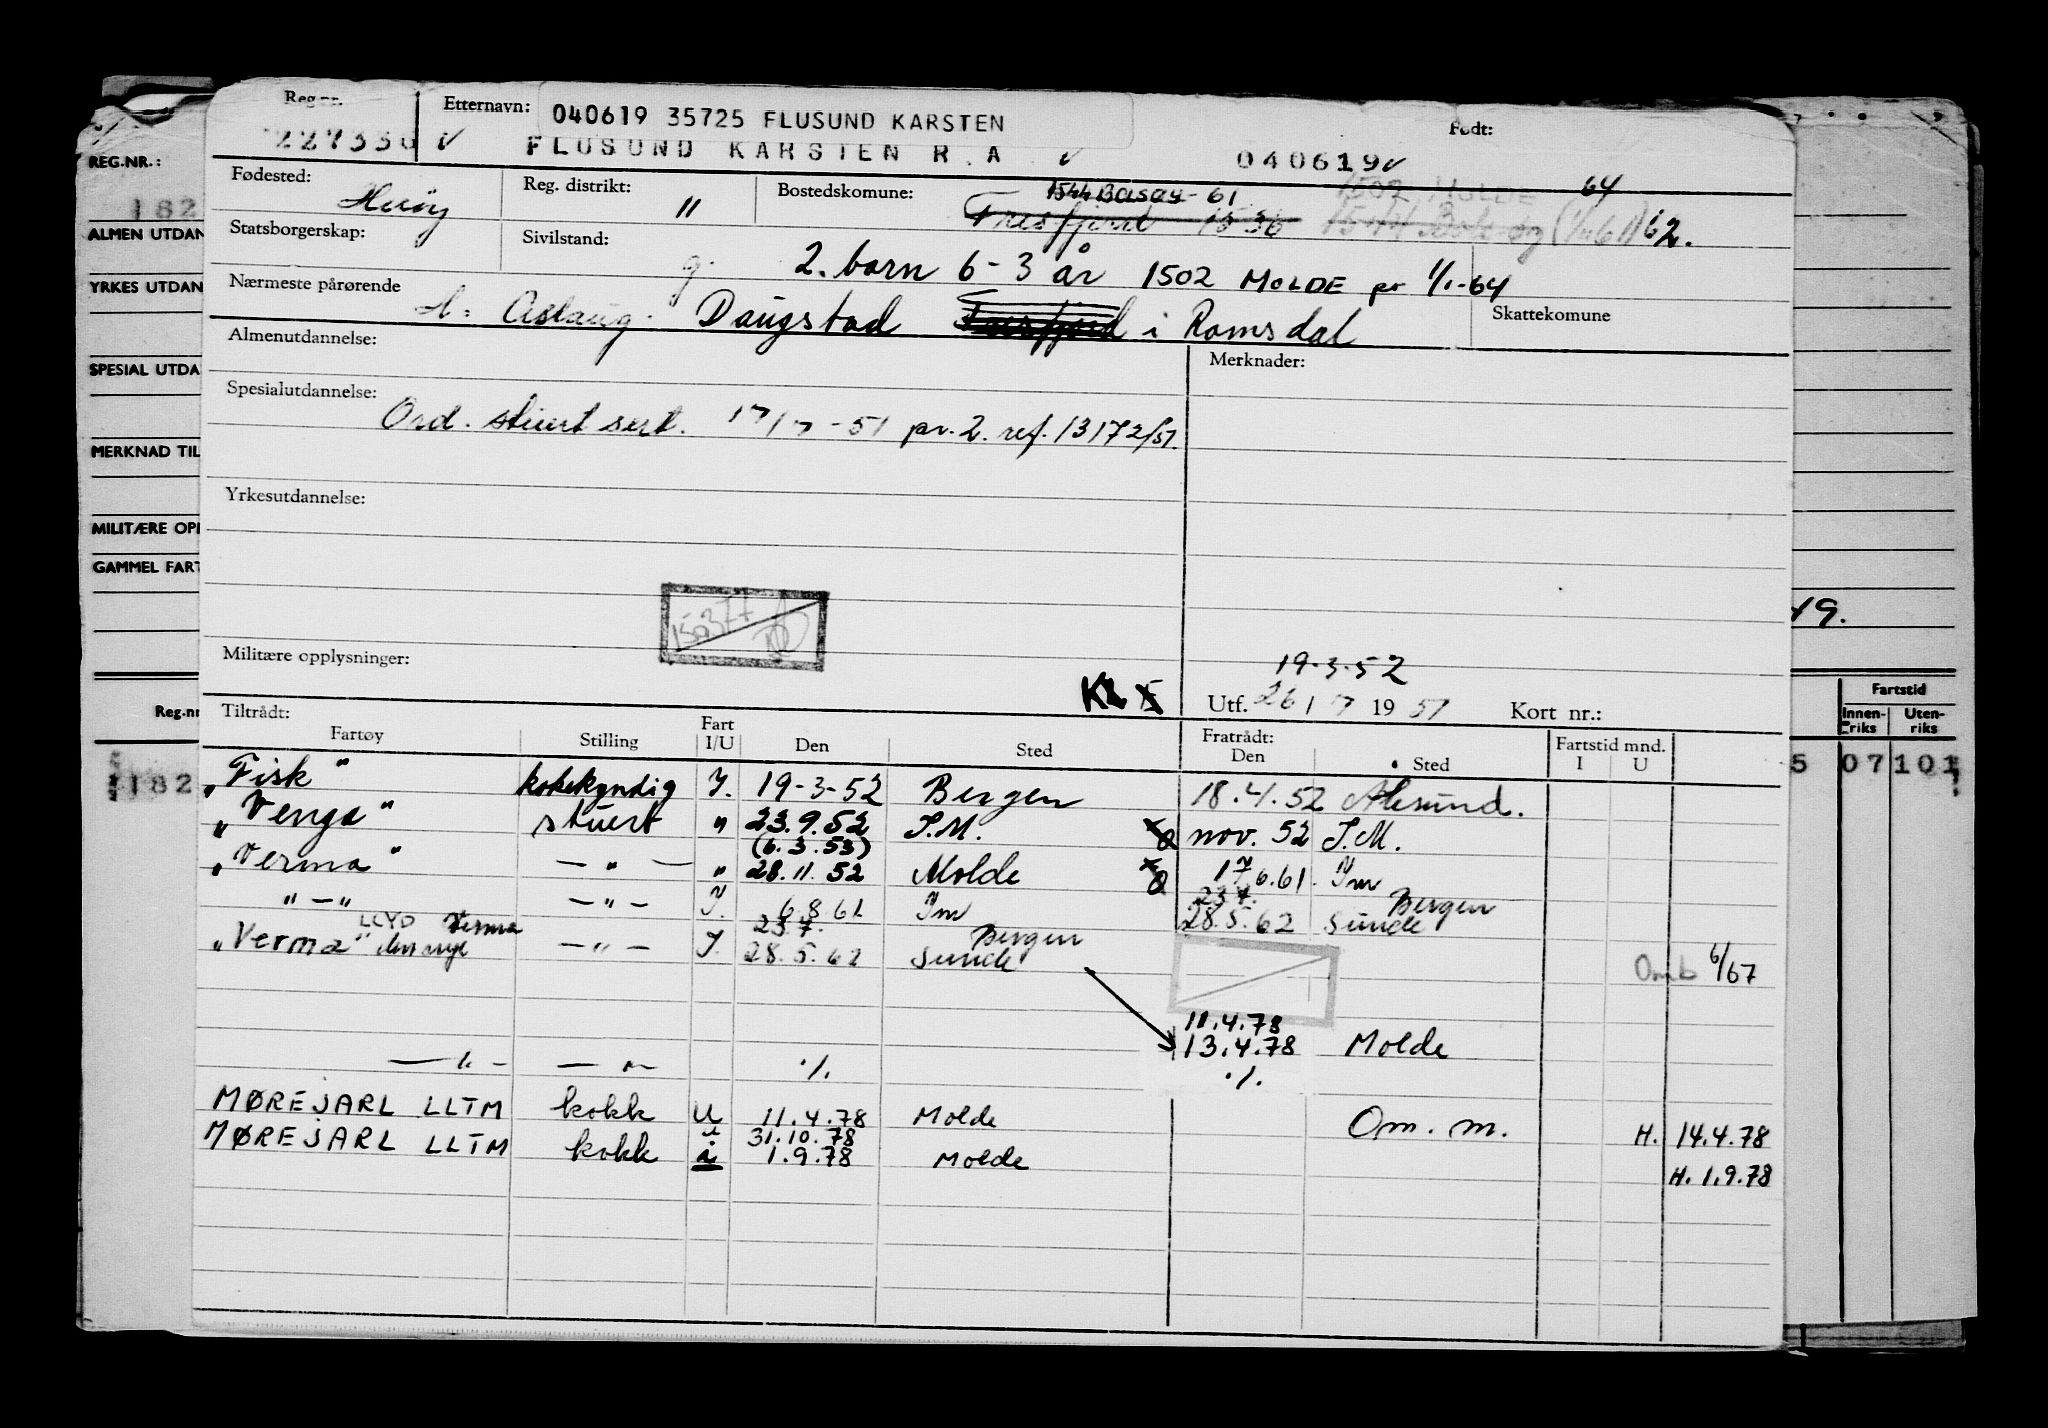 Reg.nr. Etternavn: 040619 35725 FLUSUND KARSTEN Født:
FLUSUND KARSTEN R.A 040619
REG.NR.:
Fødested: Herøy Reg. distrikt: " Bostedskommune: 1544 Bolsøy - 61 1502 MOLDE 64
Tresfjord 1536 1544 Bolsøy (1/1-61) 62.
182
ALMEN UTDAN
Statsborgerskap: Sivilstand: g. 2. barn 6-3 år 1502 MOLDE pr 1/1-64
YRKES UTDAN
Nærmeste pårørende H: Aslaug. Daugstad Tresfjord i Romsdal Skattekomune
Almenutdannelse: Merknader:
SPESIAL UTDA
Spesialutdannelse: Ord. stuert sert. 17/7-51 pr. 2. ref. 13172/51.
MERKNAD TIL
Yrkesutdannelse:
MILITÆRE OPP
GAMMEL FART
150377
49.
Militære opplysninger: 19-3-52
KL Utf. 26/7 1951 Kort nr.:
Reg.nr
Fartstid
Innen-riks Uten-riks
Tiltrådt: Fartøy Stilling Fart I/U Den Sted Fratrådt: Den Sted Fartstid mnd. I U
182 5 07 101
"Fisk" kokekyndig I. 19-3-52 Bergen 18.4.52 Ålesund.
"Venga" stuert " 23.9.52 I.M. nov. 52 I.M.
(6.3.53)
"Verma" — " — " 28.11.52 Molde 17.6.61. Im
" — " — " — I. 6.8.61 Im 23.7. 28.5.62 Bergen Sunde
LLYD Verma
"Verma" den nye — " — I. 23.7. 28.5.62 Bergen Sunde
Omb 6/67
11.4.78
13.4.78 Molde
— " — — " — ./. ./.
MØREJARL LLTM kokk U 11.4.78 Molde Om. m. H. 14.4.78
MØREJARL LLTM kokk i 31.10.78 1.9.78 Molde H. 1.9.78